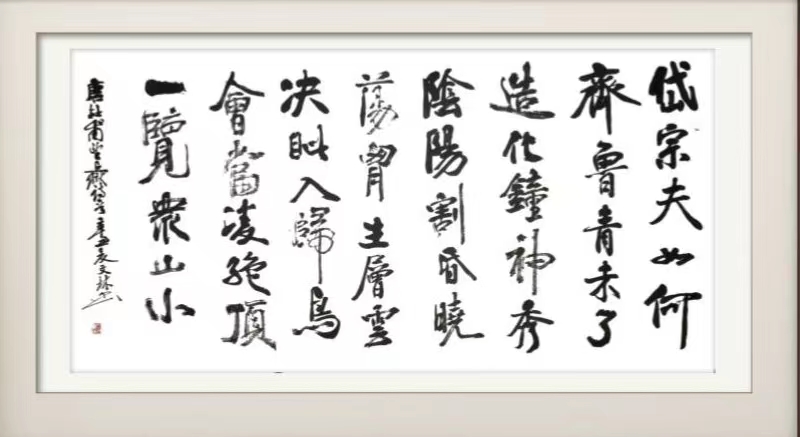 岱宗夫如何
齊魯青未了
造化鐘神秀
陰陽割昏曉
蕩胸生層雲
决眦入歸鳥
會當凌绝頂
一覽衆山小
唐杜甫望嶽 辛丑 文林